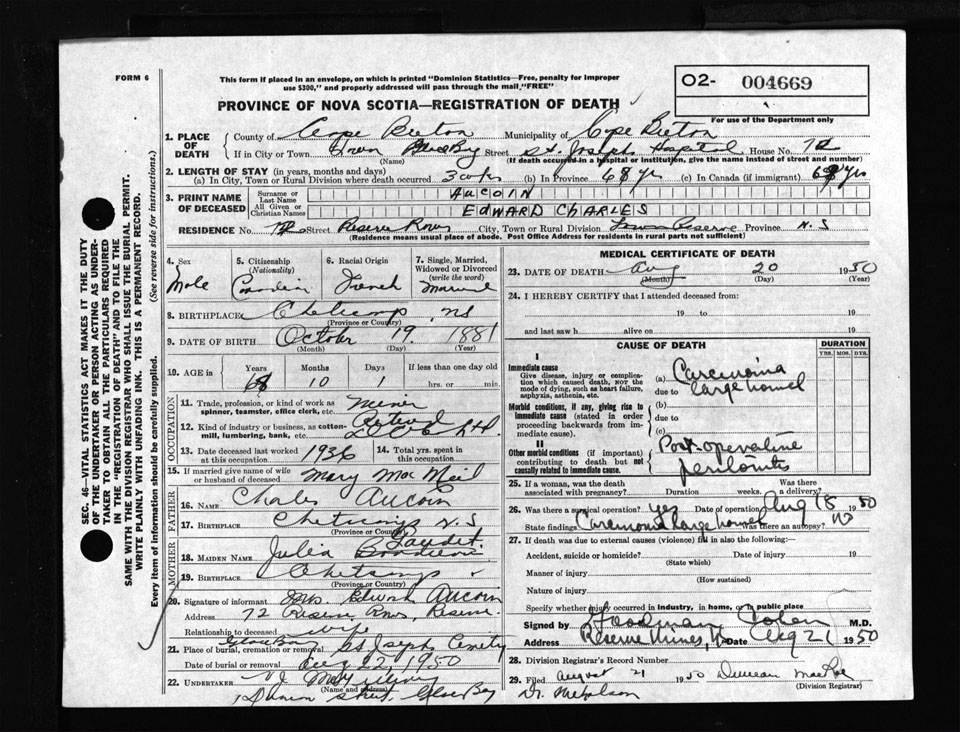 FORM 6
This form if placed in an envelope, on which is printed "Dominion Statistics—Free, penalty for improper
use $300," and properly addressed will pass through the mail "FREE"
O2- 004669
For use of the Department only
PROVINCE OF NOVA SCOTIA—REGISTRATION OF DEATH
SEC. 46—VITAL STATISTICS ACT MAKES IT THE DUTY
OF THE UNDERTAKER OR PERSON ACTING AS UNDER-
TAKER TO OBTAIN ALL THE PARTICULARS REQUIRED
IN THE "REGISTRATION OF DEATH" AND TO FILE THE
SAME WITH THE DIVISION REGISTRAR WHO SHALL ISSUE THE BURIAL PERMIT.
WRITE PLAINLY WITH UNFADING INK. THIS IS A PERMANENT RECORD.
Every item of information should be carefully supplied. (See reverse side for instructions.)
1. PLACE OF DEATH
County of Cape Breton Municipality of Cape Breton
If in City or Town Town Glace Bay Street St. Joseph Hospital House No.
(Name) (If death occurred in a hospital or institution, give the name instead of street and number)
2. LENGTH OF STAY (in years, months and days)
(a) In City, Town or Rural Division where death occurred 3 wks (b) In Province 68 yrs (c) In Canada (if immigrant) yrs
3. PRINT NAME OF DECEASED
Surname or Last Name AUCOIN
All Given or Christian Names EDWARD CHARLES
RESIDENCE No. 72 Street Reserve Rows City, Town or Rural Division Reserve Province N.S
(Residence means usual place of abode. Post Office Address for residents in rural parts not sufficient)
4. Sex Male
5. Citizenship (Nationality) Canadian
6. Racial Origin French
7. Single, Married, Widowed or Divorced (write the word) Married
8. BIRTHPLACE Cheticamp NS
(Province or Country)
9. DATE OF BIRTH October 19. 1881
(Month) (Day) (Year)
10. AGE in Years 68 Months 10 Days 1 If less than one day old hrs. or min.
OCCUPATION
11. Trade, profession, or kind of work as spinner, teamster, office clerk, etc. Miner
12. Kind of industry or business, as cotton-mill, lumbering, bank, etc. Retired
13. Date deceased last worked at this occupation 1936 14. Total yrs. spent in this occupation
15. If married give name of wife or husband of deceased Mary Mac Neil
FATHER
16. NAME Charles Aucoin
17. BIRTHPLACE Cheticamp N.S
MOTHER
18. MAIDEN NAME Julia Gaudet
19. BIRTHPLACE Cheticamp
(Province or Country)
20. Signature of informant Mrs Edward Aucoin
Address 72 Reserve Rows, Reserve
Relationship to deceased wife
21. Place of burial, cremation or removal Glace Bay St Josephs Cemetery
Date of burial or removal Aug 22, 1950
22. UNDERTAKER
(Name and address)
Street, Glace Bay
MEDICAL CERTIFICATE OF DEATH
23. DATE OF DEATH Aug 20 1950
(Month) (Day) (Year)
24. I HEREBY CERTIFY that I attended deceased from:
19 to 19
and last saw h alive on 19
CAUSE OF DEATH
DURATION
YRS. MOS. DYS.
I
Immediate cause
Give disease, injury or complication which caused death, nor the mode of dying, such as heart failure, asphyxia, asthenia, etc.
(a) Carcinoma
due to large bowel
Morbid conditions, if any, giving rise to immediate cause (stated in order proceeding backwards from immediate cause).
(b)
due to
(c)
II
Other morbid conditions (if important) contributing to death but not causally related to immediate cause.
Post-operative
peritonitis
25. If a woman, was the death associated with pregnancy? Duration weeks. Was there a delivery?
26. Was there a surgical operation? yes Date of operation Aug 18 1950
State findings Carcinoma large bowel Was there an autopsy? no
27. If death was due to external causes (violence) fill in also the following:—
Accident, suicide or homicide? Date of injury 19
(State which)
Manner of injury
(How sustained)
Nature of injury
Specify whether injury occurred in industry, in home, or public place
Signed by Goodman Cohen M.D.
Address Reserve Mines, Date Aug 21 1950
28. Division Registrar's Record Number
29. Filed August 21 1950 Duncan MacRae
(Division Registrar)
Dr. Nicholson